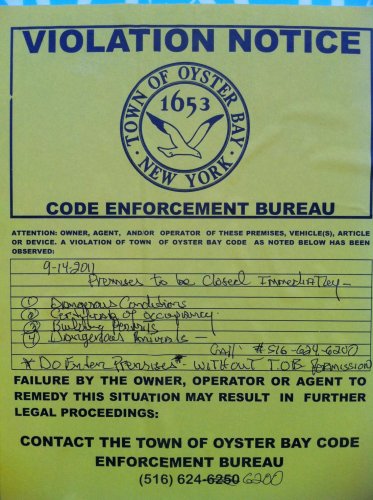 VIOLATION NOTICE
TOWN OF OYSTER BAY
1653
NEW YORK
CODE ENFORCEMENT BUREAU
ATTENTION: OWNER, AGENT, AND/OR OPERATOR OF THESE PREMISES, VEHICLE(S), ARTICLE
OR DEVICE. A VIOLATION OF TOWN OF OYSTER BAY CODE AS NOTED BELOW HAS BEEN
OBSERVED:
9-14-2011
Premises to be Closed Immediatley -
① Dangerous Conditions
② Certificate of occupancy
③ Building Permits
④ Dangerous Animals -
Call: #516-624-6200
*Do Enter Premises* without T.O.B. permission
FAILURE BY THE OWNER, OPERATOR OR AGENT TO
REMEDY THIS SITUATION MAY RESULT IN FURTHER
LEGAL PROCEEDINGS:
CONTACT THE TOWN OF OYSTER BAY CODE
ENFORCEMENT BUREAU
(516) 624-6250 6200